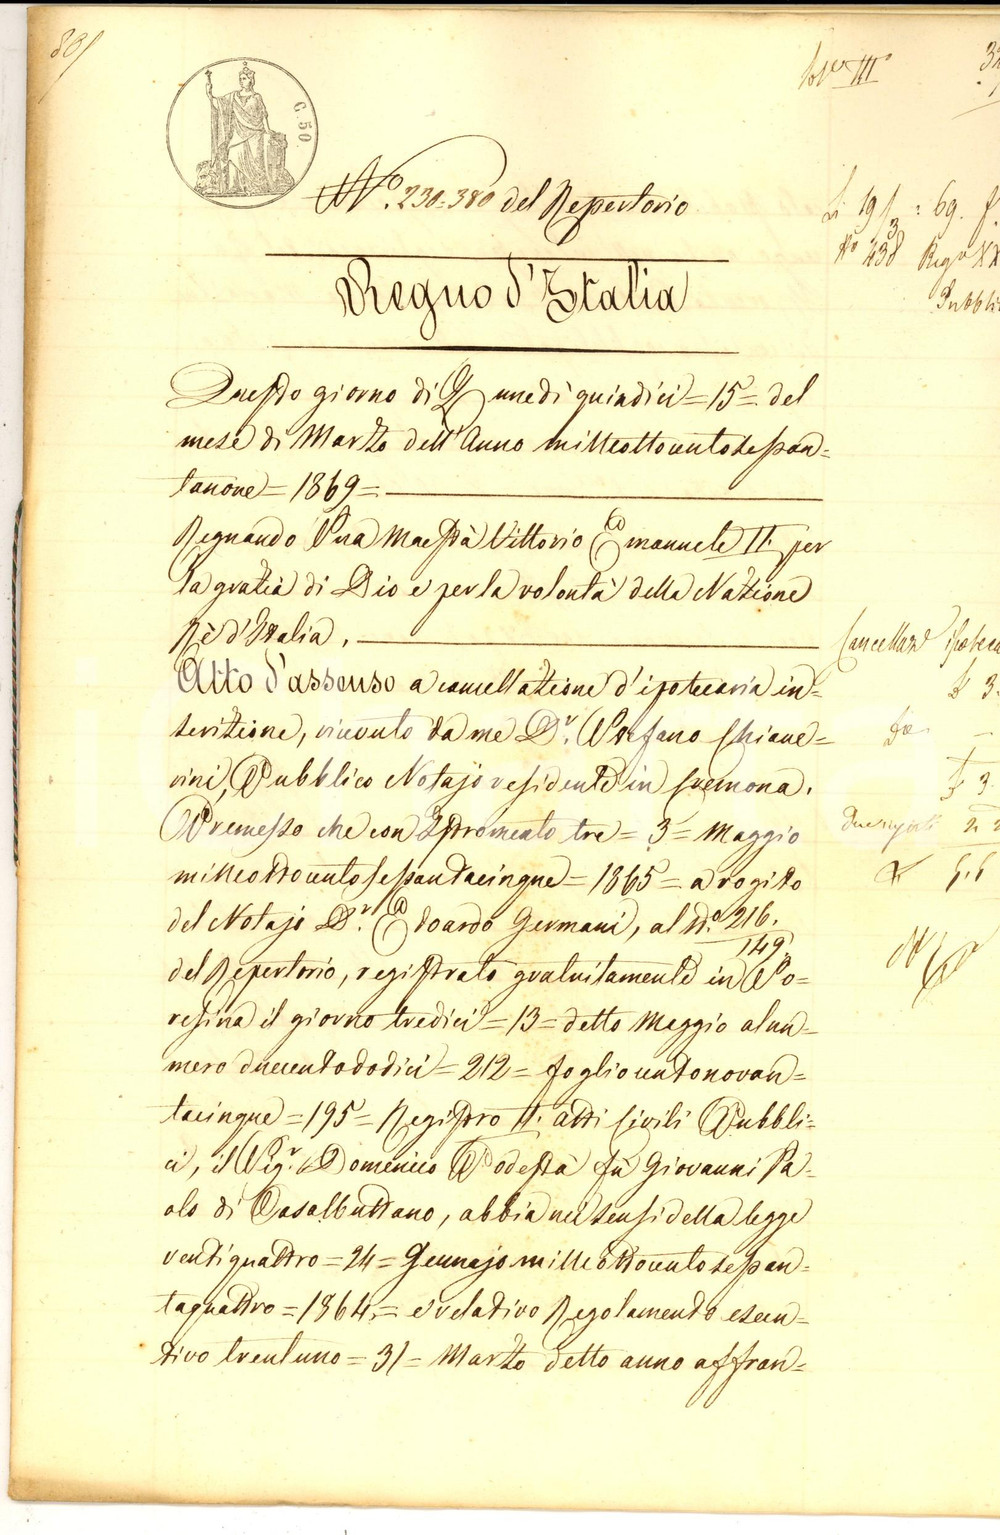 C. 50
N.° 230=380 del Repertorio
Regno d'Italia
Questo giorno di Lunedì quindici = 15 = del
mese di Marzo dell'Anno milleottocentosessan=
tanove = 1869 =
Regnando Sua Maestà Vittorio Emanuele II. per
la grazia di Dio e per la volontà della Nazione
Rè d'Italia.
Atto d'assenso a cancellazione d'ipotecaria in=
scrizione, ricevuto da me D.r Stefano Schiave=
rini, Pubblico Notajo residente in Cremona.
Premesso che con Istromento tre = 3 = Maggio
milleottocentosessantacinque = 1865 = a rogito
del Notajo D.r Edoardo Germani, al N.° 216.
149.
del Repertorio, registrato gratuitamente in Po=
resina il giorno tredici = 13 = detto Maggio al nu=
mero duecentododici = 212 = foglio centonovan=
tacinque = 195 = Registro II. atti Civili Pubbli=
ci, il Sig.r Domenico Podestà fu Giovanni Pa=
olo di Casalbuttano, abbia nei sensi della legge
ventiquattro = 24 = Gennajo milleottocentosessan=
taquattro = 1864. = e relativo Regolamento esecu=
tivo trentuno = 31 = Marzo detto anno affran=
19
: 69. f.
N.° 438 Reg.°
Pubbli
Cancellaz.e ipoteca
3.
3.